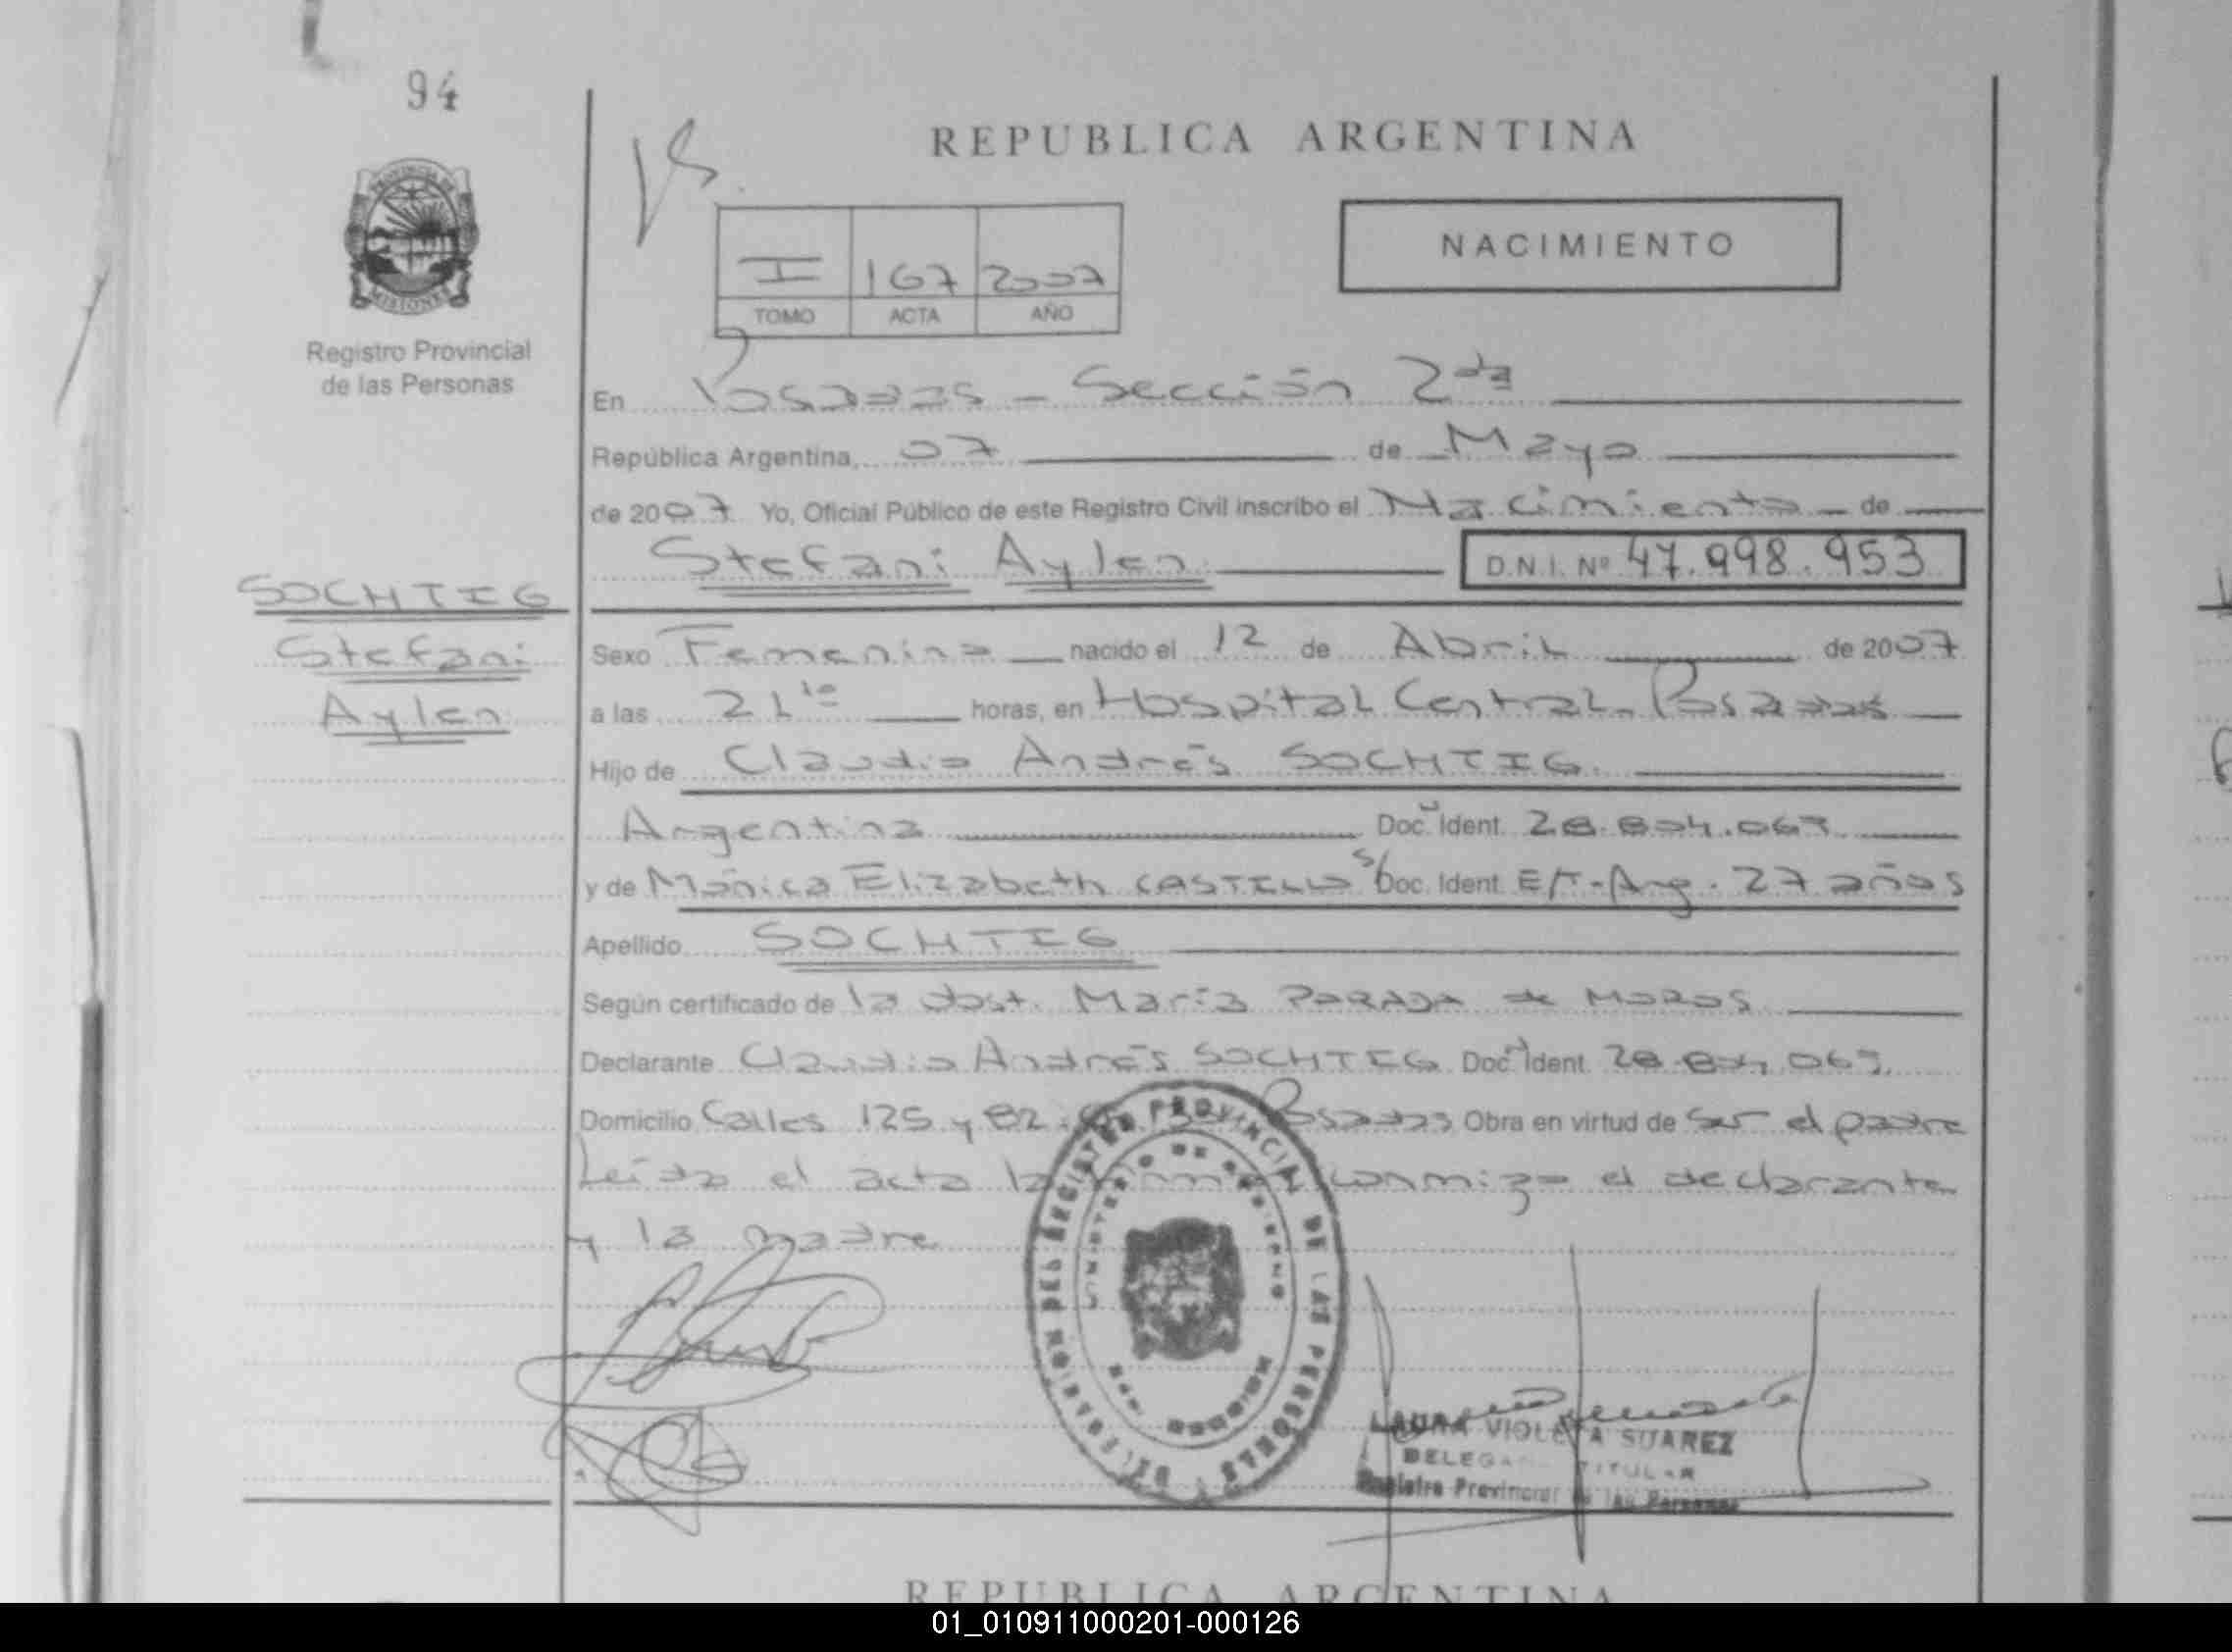 94
REPUBLICA ARGENTINA
NACIMIENTO
I 167 2007
TOMO ACTA AÑO
PROVINCIA DE
MISIONES
Registro Provincial
de las Personas
En Posadas - Sección 2da
República Argentina, 07 de Mayo
de 2007 Yo, Oficial Público de este Registro Civil inscribo el Nacimiento - de
Stefani Aylen D.N.I. Nº 47.998.953
SOCHTIG
Stefani
Aylen
Sexo Femenino nacido el 12 de Abril de 2007
a las 21 horas, en Hospital Central - Posadas
Hijo de Claudio Andrés SOCHTIG
Argentina Doc. Ident.
y de Mónica Elizabeth CASTILLO s/ Doc. Ident. Arg. 27 años
Apellido SOCHTIG
Según certificado de la obst. María PARADA de MORAS
Declarante Claudio Andrés SOCHTIG Doc. Ident.
Domicilio Calles 125 y 82 Posadas Obra en virtud de Ser el padre
Leída el acta la conmigo el declarante
y la madre
DEL REGISTRO PROVINCIAL DE LAS PERSONAS
MINISTERIO DE GOBIERNO
MISIONES
LAURA VIOLETA SUAREZ
DELEGADA TITULAR
Registro Provincial de las Personas
REPUBLICA ARGENTINA
01_010911000201-000126